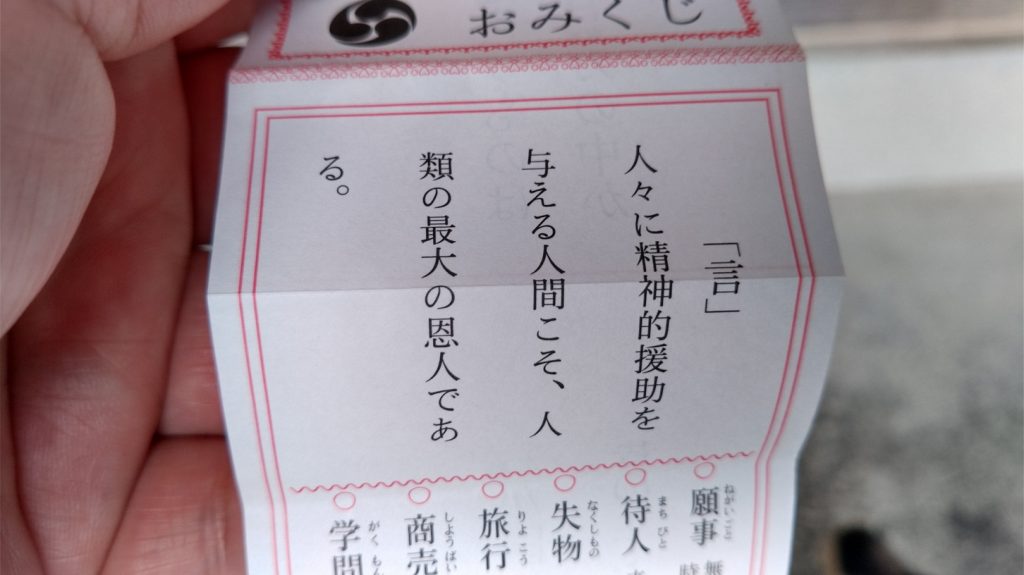 おみくじ
「言」
人々に精神的援助を
与える人間こそ、人
類の最大の恩人であ
る。
願事
ねがいごと
待人
まちびと
失物
なくしもの
旅行
りょこう
商売
しょうばい
学問
がくもん